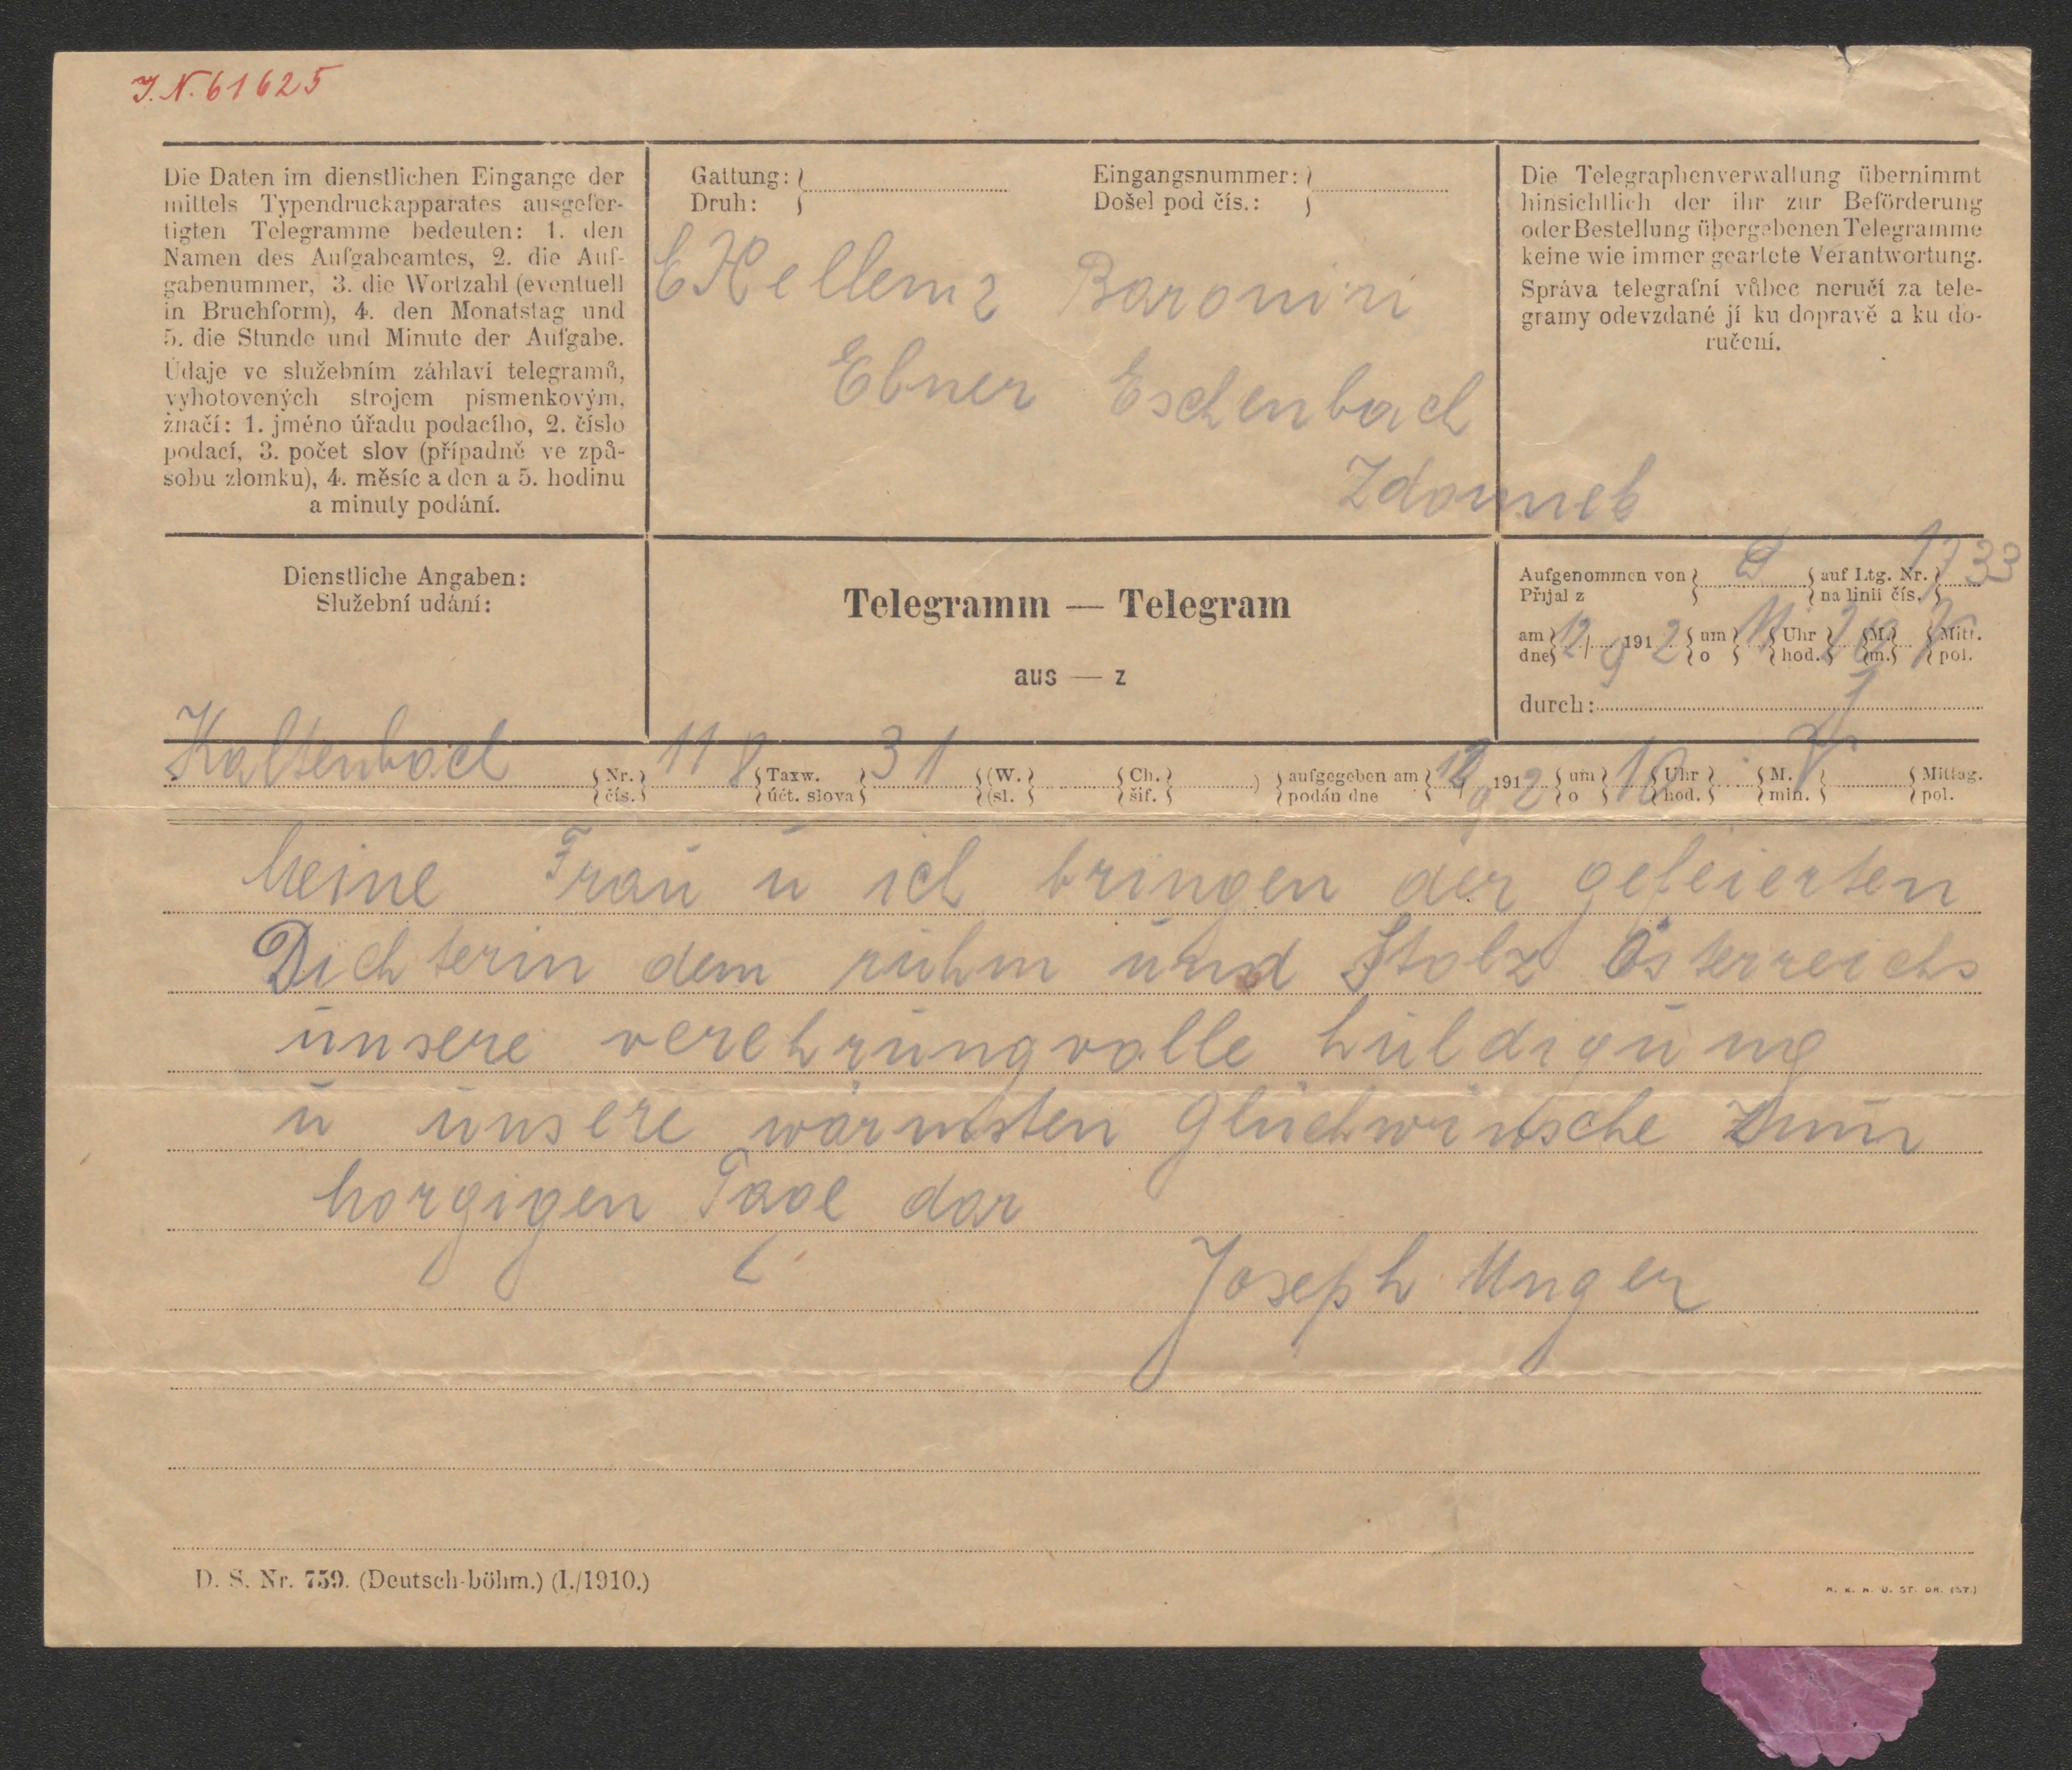 J.N. 61625
Die Daten im dienstlichen Eingange der
mittels Typendruckapparates ausgefer-
tigten Telegramme bedeuten: 1. den
Namen des Aufgabeamtes, 2. die Auf-
gabenummer, 3. die Wortzahl (eventuell
in Bruchform), 4. den Monatstag und
5. die Stunde und Minute der Aufgabe.
Údaje ve služebním záhlaví telegramů,
vyhotovených strojem písmenkovým,
značí: 1. jméno úřadu podacího, 2. číslo
podací, 3. počet slov (případně ve způ-
sobu zlomku), 4. měsíc a den a 5. hodinu
a minuty podání.
Gattung:
Druh:
Eingangsnummer:
Došel pod čís.:
Baronin
Ebner Eschenbach
Die Telegraphenverwaltung übernimmt
hinsichtlich der ihr zur Beförderung
oder Bestellung übergebenen Telegramme
keine wie immer geartete Verantwortung.
Správa telegrafní vůbec neručí za tele-
gramy odevzdané jí ku dopravě a ku do-
ručení.
Dienstliche Angaben:
Služební udání:
Telegramm — Telegram
aus — z
Aufgenommen von auf Ltg. Nr. 1733
Přijal z na linii čís.
am 12/9 1912 um 11 Uhr M. Mitt.
dne o hod. m. pol.
durch:
Kaltenbach Nr. 118 Taxw. 31 (W. Ch. ) aufgegeben am 12/9 1912 um 10 Uhr M. V Mittag.
čís. účt. slova (sl. šif. podán dne o hod. min. pol.
Meine Frau u ich bringen der gefeierten
Dichterin dem ruhm und Stolz Österreichs
unsere verehrungvolle huldigung
u unsere wärmsten Glückwünsche zum
horgigen Tage dar
Joseph Unger
D. S. Nr. 759. (Deutsch-böhm.) (I./1910.)